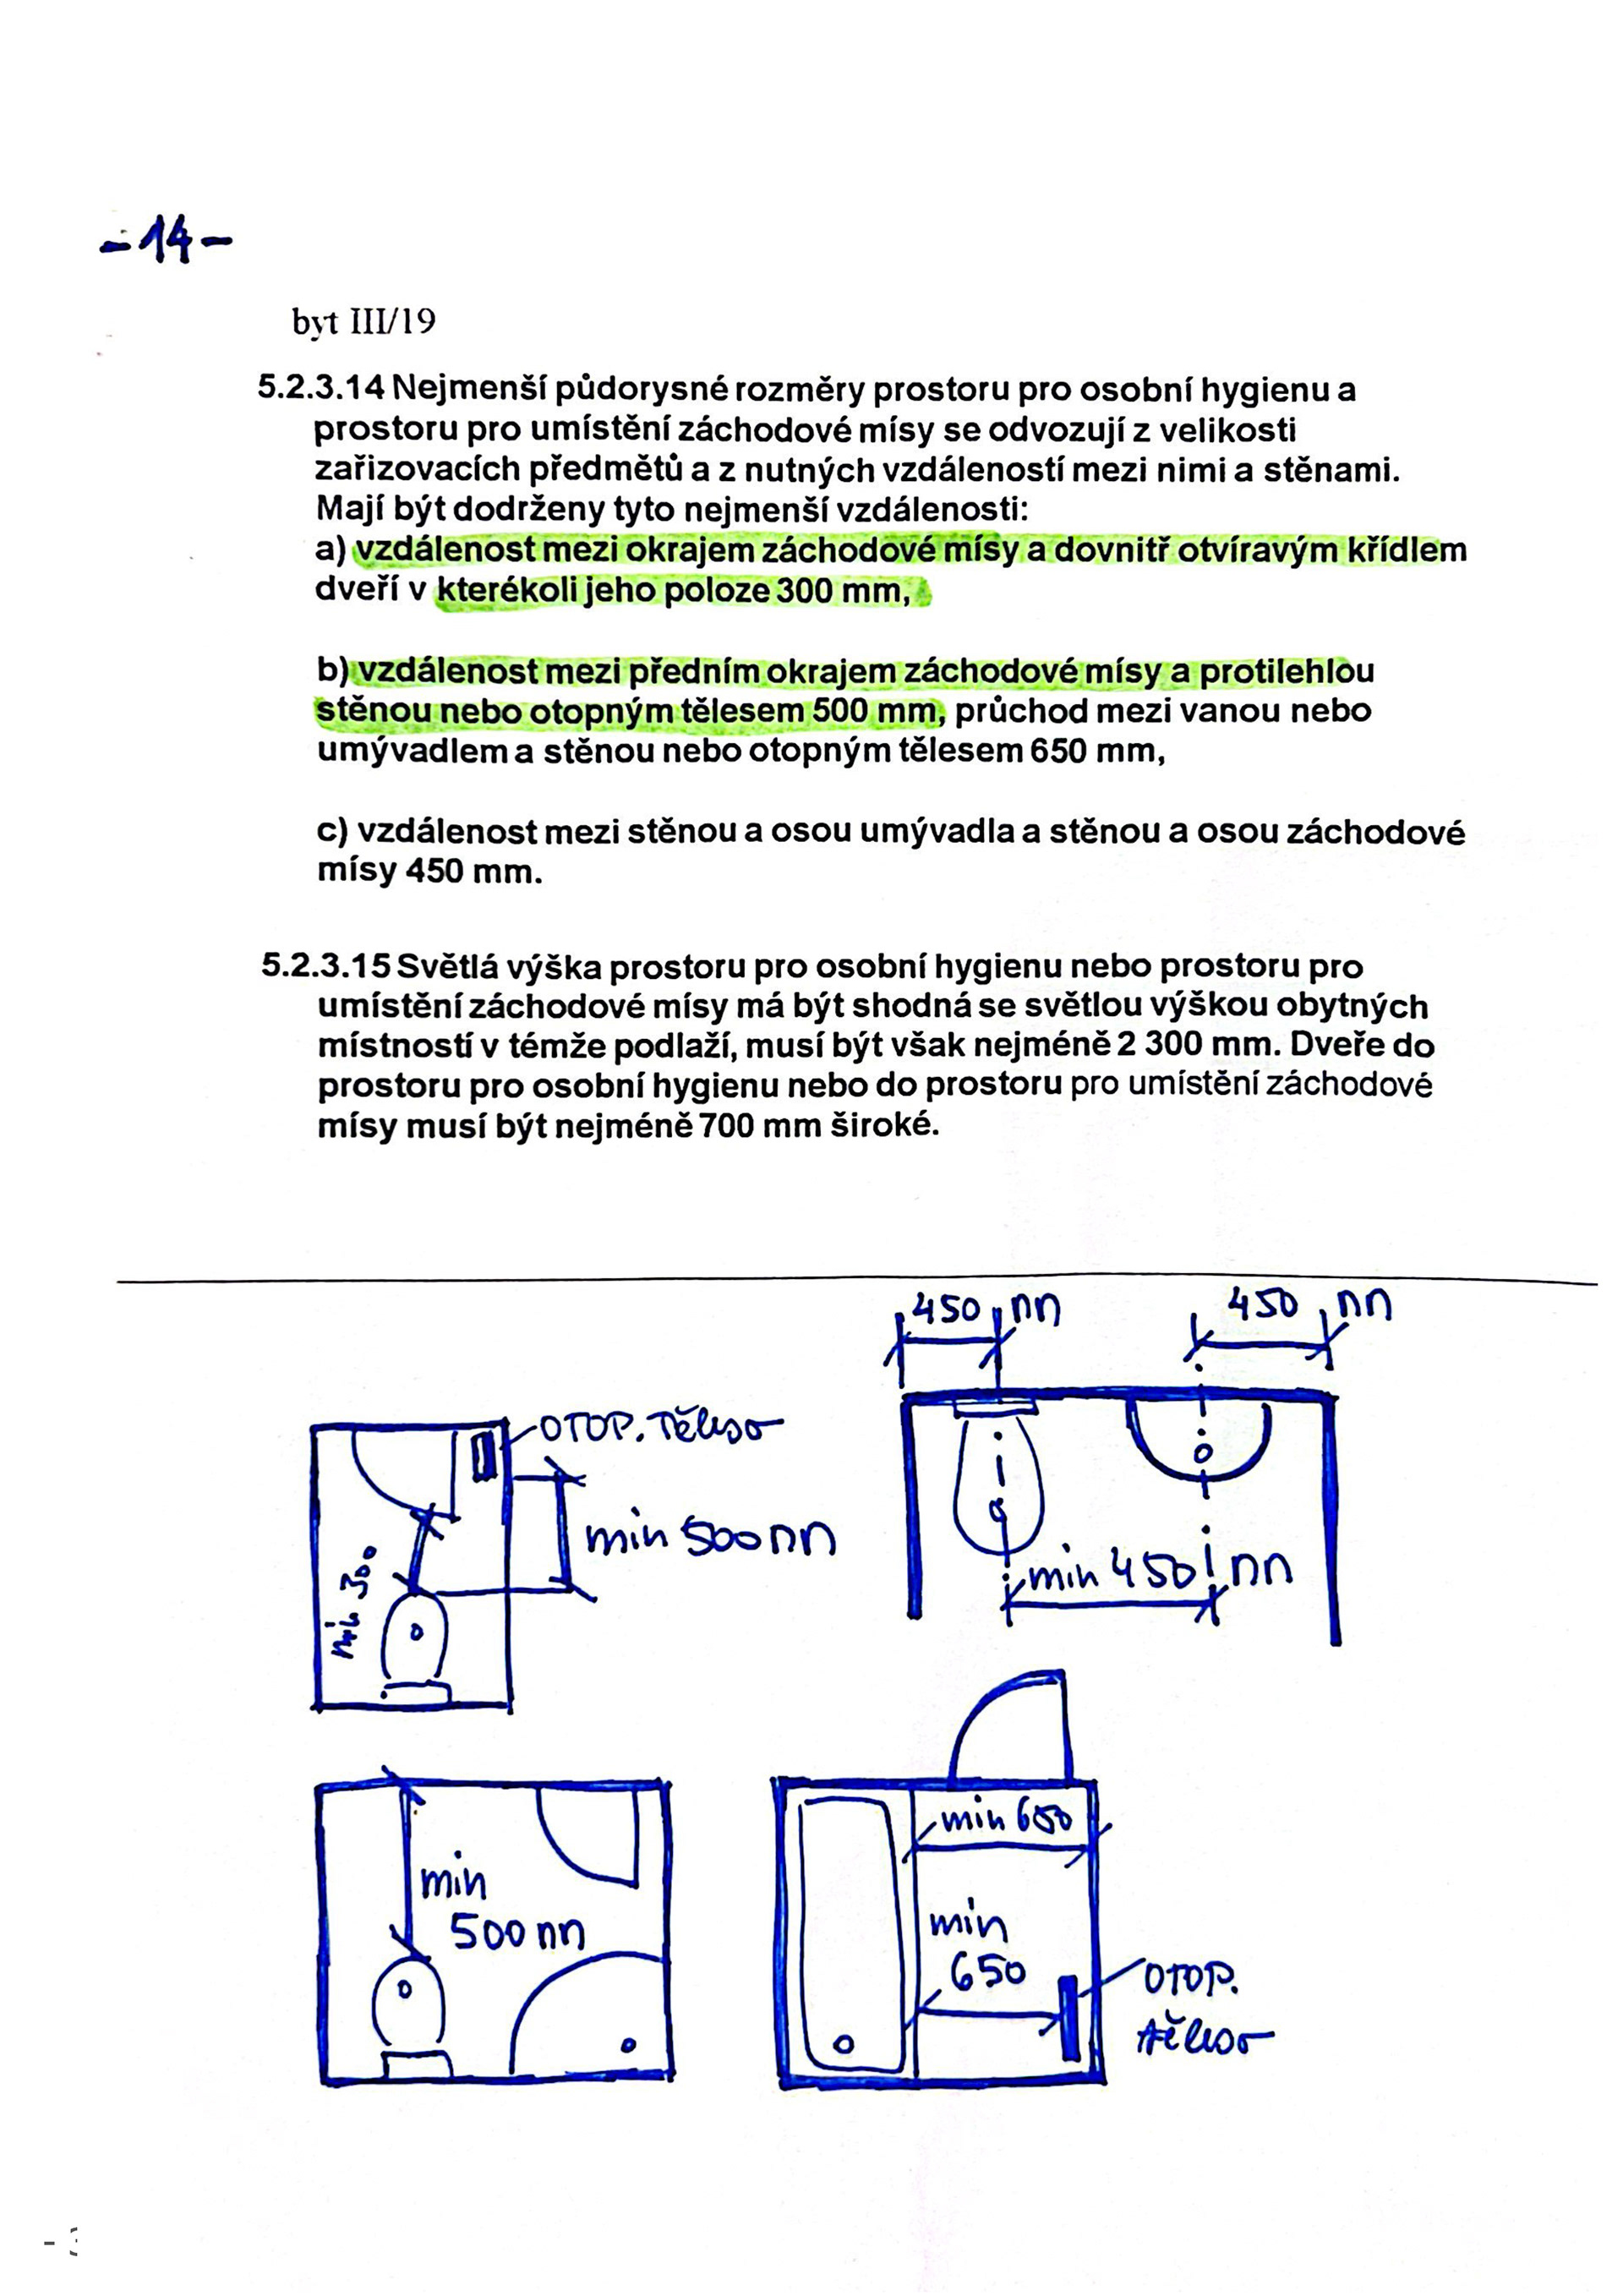 -14-
byt III/19
5.2.3.14 Nejmenší půdorysné rozměry prostoru pro osobní hygienu a
prostoru pro umístění záchodové mísy se odvozují z velikosti
zařizovacích předmětů a z nutných vzdáleností mezi nimi a stěnami.
Mají být dodrženy tyto nejmenší vzdálenosti:
a) vzdálenost mezi okrajem záchodové mísy a dovnitř otvíravým křídlem
dveří v kterékoli jeho poloze 300 mm,
b) vzdálenost mezi předním okrajem záchodové mísy a protilehlou
stěnou nebo otopným tělesem 500 mm, průchod mezi vanou nebo
umývadlem a stěnou nebo otopným tělesem 650 mm,
c) vzdálenost mezi stěnou a osou umývadla a stěnou a osou záchodové
mísy 450 mm.
5.2.3.15 Světlá výška prostoru pro osobní hygienu nebo prostoru pro
umístění záchodové mísy má být shodná se světlou výškou obytných
místností v témže podlaží, musí být však nejméně 2 300 mm. Dveře do
prostoru pro osobní hygienu nebo do prostoru pro umístění záchodové
mísy musí být nejméně 700 mm široké.
450 mm
450 mm
OTOP. Těleso
min 500 mm
min. 300
min 450 mm
min
500 mm
min 650
min
650
OTOP.
těleso